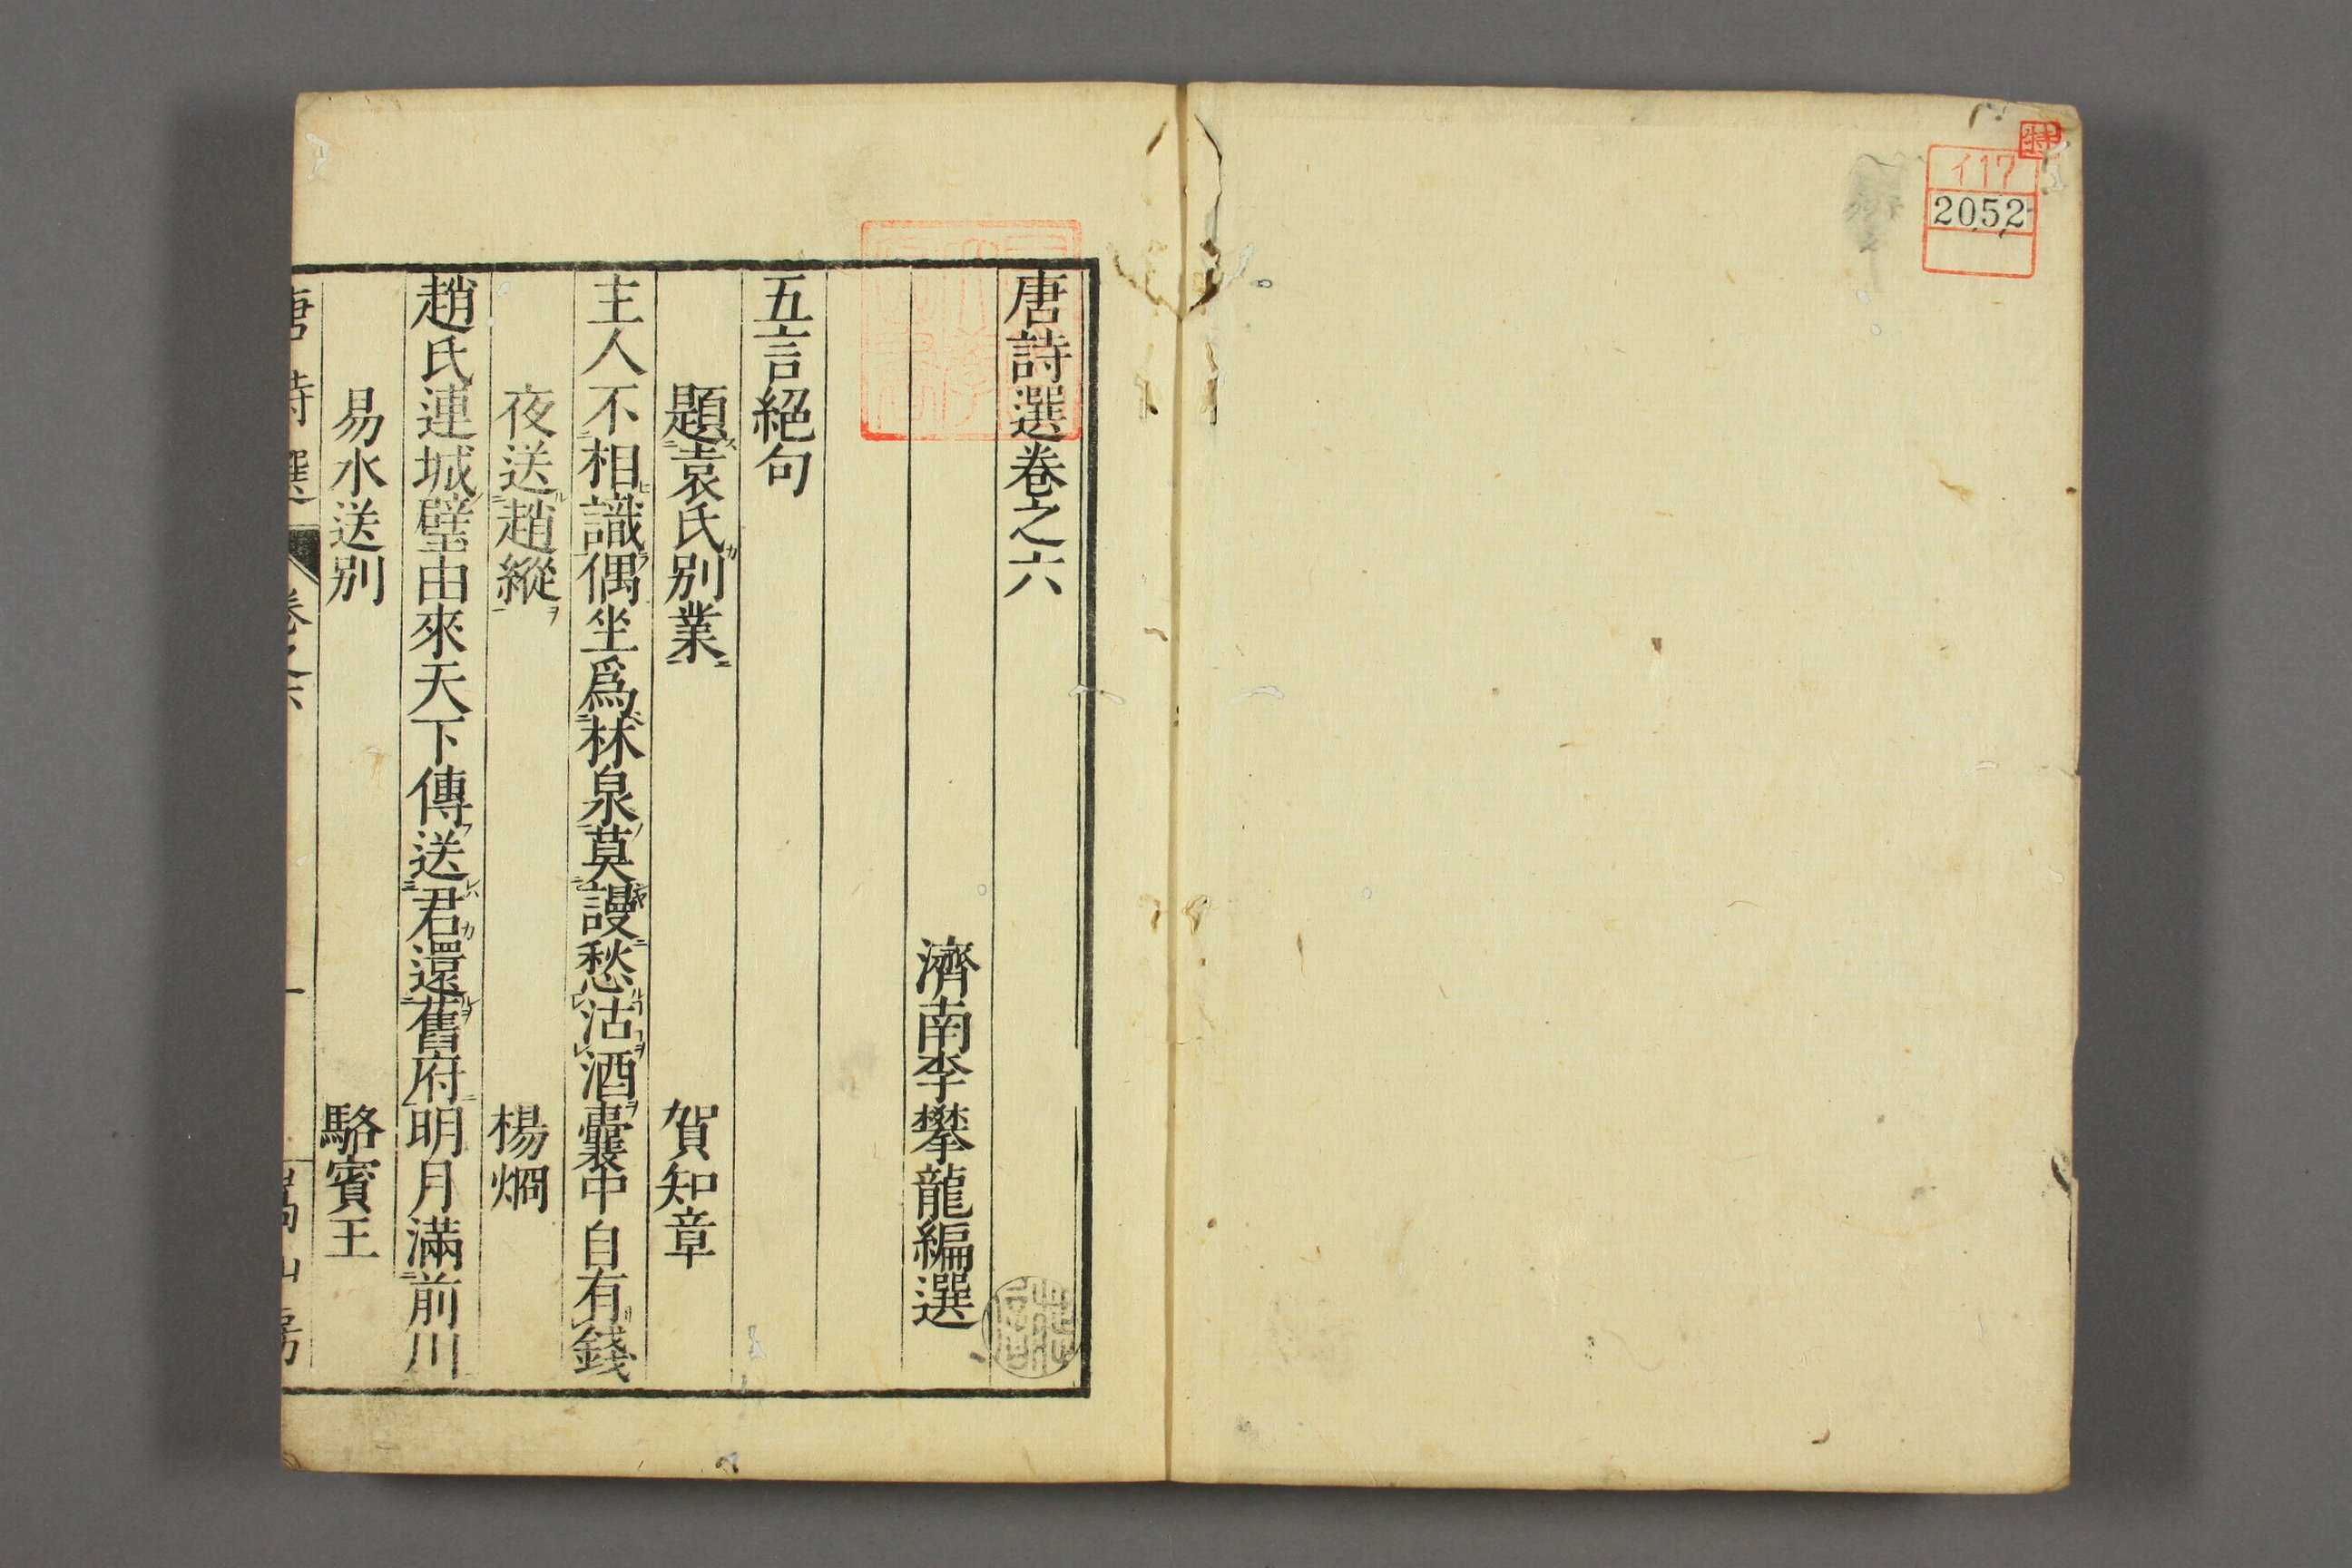 特
イ17
2052
唐詩選卷之六
濟南李攀龍編選
五言絕句
題袁氏別業 賀知章
主人不相識偶坐爲林泉莫謾愁沽酒囊中自有錢
夜送趙縱 楊烱
趙氏連城璧由來天下傳送君還舊府明月滿前川
易水送別 駱賓王
唐詩選 卷之六 一